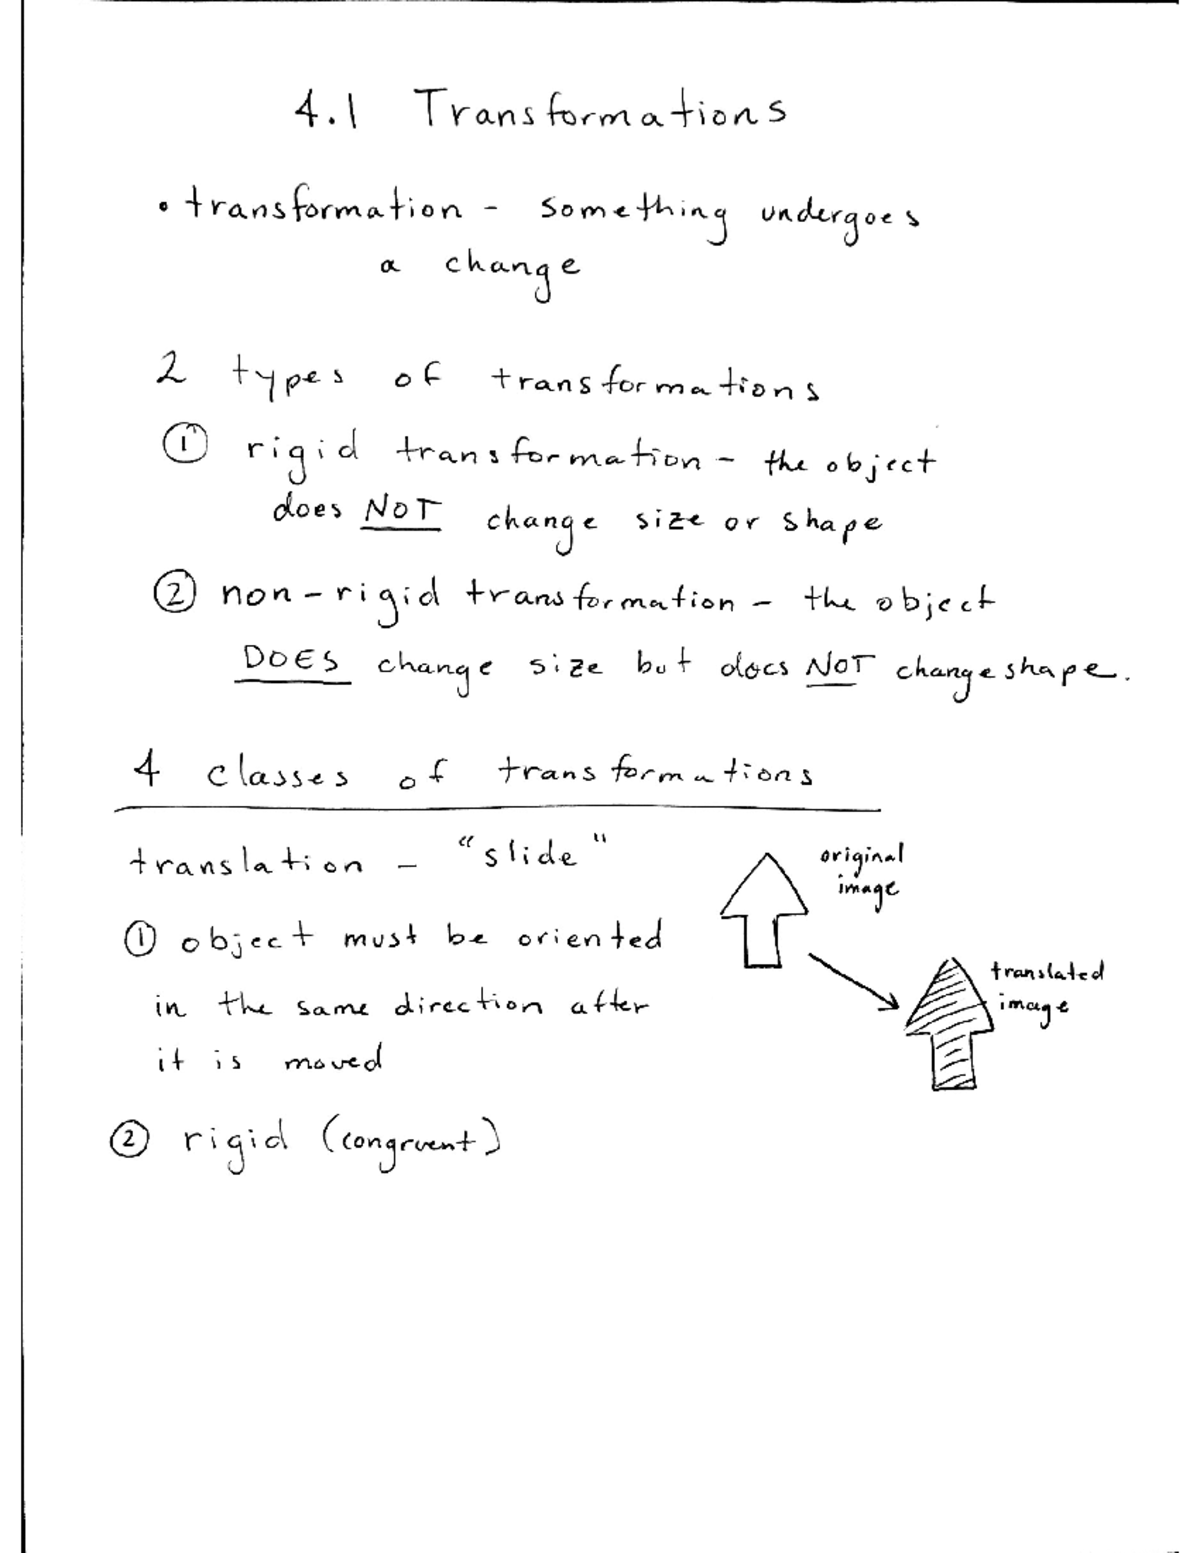 4.1 Transformations
• transformation - something undergoes
a change
2 types of transformations
① rigid transformation - the object
does NOT change size or shape
② non-rigid transformation - the object
DOES change size but does NOT change shape.
4 classes of transformations
translation - "slide"
① object must be oriented
in the same direction after
it is moved
② rigid (congruent)
original
image
translated
image